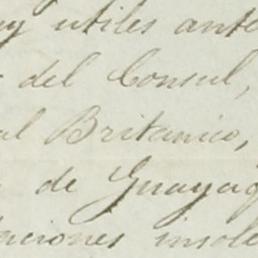 uy utiles ante
del Consul,
al Britanico,
de Guayaq
aciones insole